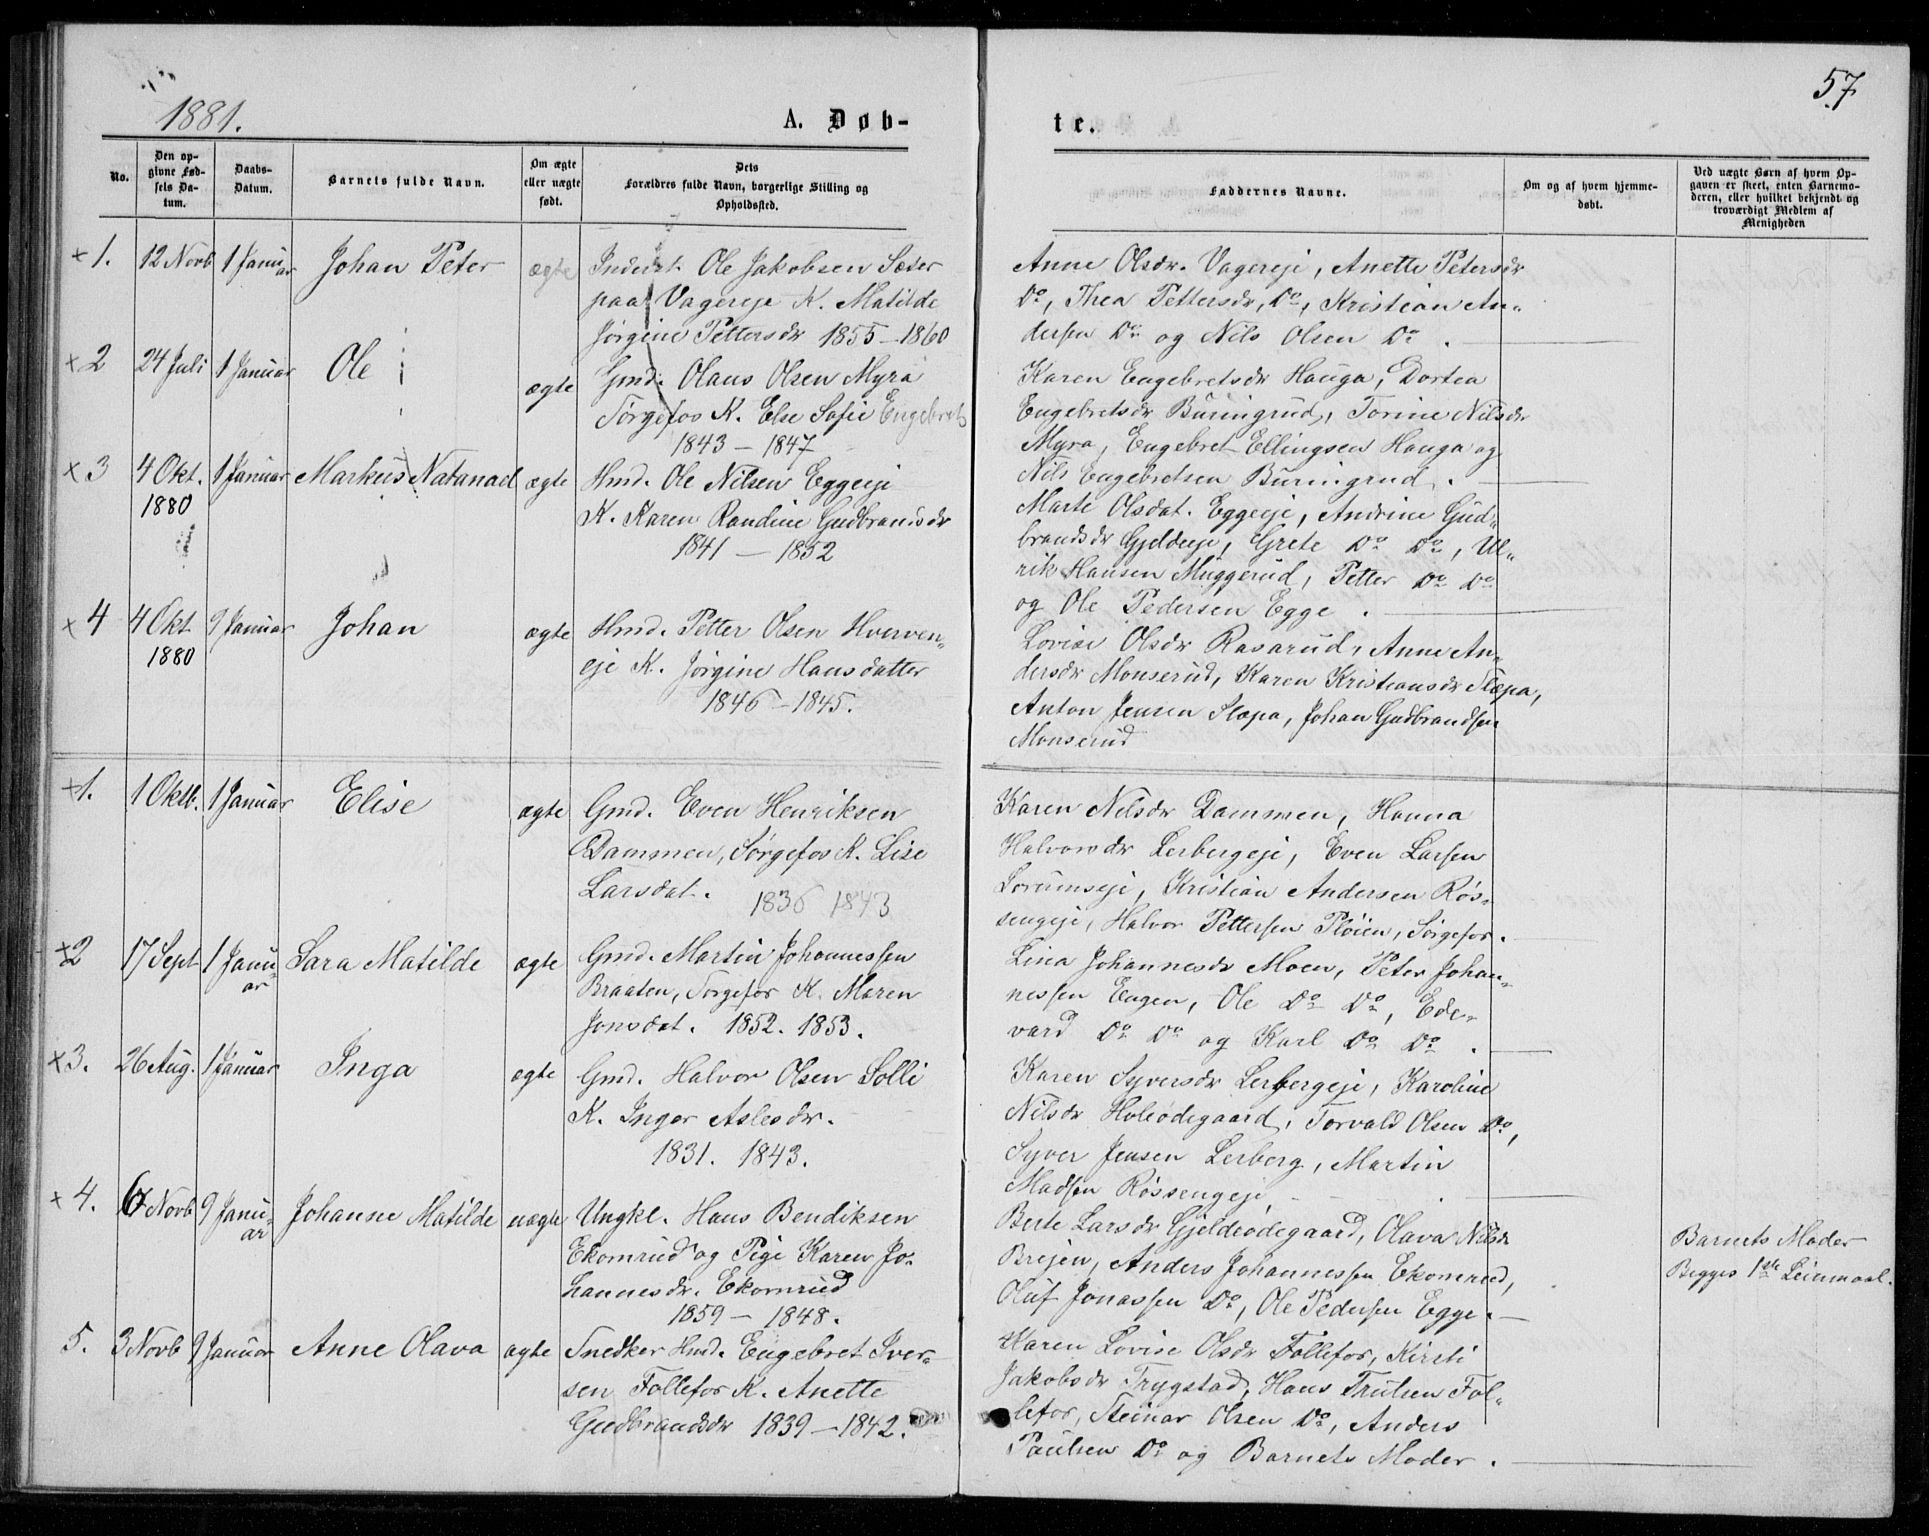 57
1881.
A. Døb-
te.
No.
Den op-
givne Fød-
sels Da-
tum.
Daabs-
Datum.
Barnets fulde Navn.
Om ægte
eller uægte
født.
Dets
Forældres fulde Navn, borgerlige Stilling og
Opholdssted.
Faddernes Navne.
Om og af hvem hjemme-
døbt.
Ved uægte Børn af hvem Op-
gaven er skeet, enten Barnemo-
deren, eller hvilket bekjendt og
troværdigt Medlem af
Menigheden
+1. 12 Novb 1 Janu-
ar
Johan Peter
ægte
Inderst Ole Jakobsen Sæter
paa Vagereje K. Matilde
Jørgine Pettersdr 1855-1860
Anne Olsdr. Vagereje, Anette Petersdr
Do, Thea Pettersdr, Do, Kristian An-
dersen Do og Nils Olsen Do.
+2 24 Juli 1 Januar
Ole
ægte
Gmd. Olaus Olsen Myra
Sørgefos K. Else Sofie Engebrets
1843 - 1847
Karen Engebretsdr Hauga, Dortea
Engebretsdr Buringrud, Torine Nilsdr
Myra, Engebret Ellingsen Hauga og
Nils Engebretsen Buringrud.
x3 4 Okt. 1 Januar
1880
Markus Natanael
ægte
Hmd. Ole Nilsen Eggeeje
K. Karen Randine Gudbrandsdr
1841 - 1852
Marte Olsdat. Eggeeje, Andrine Gud-
brandsdr Gjeldeeje, Grete Do Do, Ul-
rik Hansen Muggerud, Petter Do Do
og Ole Pedersen Egge.
x4 4 Okt 9 Januar
1880
Johan
ægte
Hmd. Petter Olsen Hverven-
eje K. Jørgine Hansdatter
1846 - 1845.
Lovise Olsdr Rasarud, Anne An-
dersdr Monserud, Karen Kristiansdr Slæpa,
Anton Jensen Slæpa, Johan Gudbrandsen
Monserud
+1. 1 Oktb. 1 Januar
Elise
ægte
Gmd. Even Henriksen
Dammen, Sørgefos K. Lise
Larsdat. 1836 1843
Karen Nilsdr Dammen, Hanna
Halvorsdr Lerbergeje, Even Larsen
Lorumseje, Kristian Andersen Røs-
sengeje, Halvor Pettersen Pløien, Sørgefos.
+2 17 Sept 1 Janu-
ar
Sara Matilde
ægte
Gmd. Martin Johannessen
Braaten, Sørgefos K. Maren
Jonsdat. 1852. 1853.
Lina Johannesdr Moen, Peter Johan-
nessen Engen, Ole Do Do, Ede-
vard Do Do og Karl Do Do.
x3. 26 Aug. 1 Januar
Inga
ægte
Gmd. Halvor Olsen Solli
K. Inger Aslesdr.
1831. 1843.
Karen Syversdr Lerbergeje, Karoline
Nilsdr Holeødegaard, Torvald Olsen Do,
Syver Jensen Lerberg, Martin
Madsen Røssengeje
x4. 6 Novb 9 Janu-
ar
Johanne Matilde
uægte
Ungkl. Hans Bendiksen
Ekornrud og Pige Karen Jo-
hannesdr. Ekornrud
1859 - 1848.
Berte Larsdr Gjeldeødegaard, Olava Nilsdr
Brejen, Anders Johannessen Ekornrud,
Oluf Jonassen Do, Ole Pedersen Egge.
Barnets Moder
Begges 1ste Leiermaal.
5. 3 Novb 9 Januar
Anne Olava
ægte
Snedker Hmd. Engebret Iver-
sen Follefos K. Anette
Gudbrandsdr 1839 - 1842.
Karen Lovise Olsdr Follefos, Kirsti
Jakobsdr Trygstad, Hans Trulsen Fol-
lefos, Steinar Olsen Do, Anders
Paulsen Do og Barnets Moder.